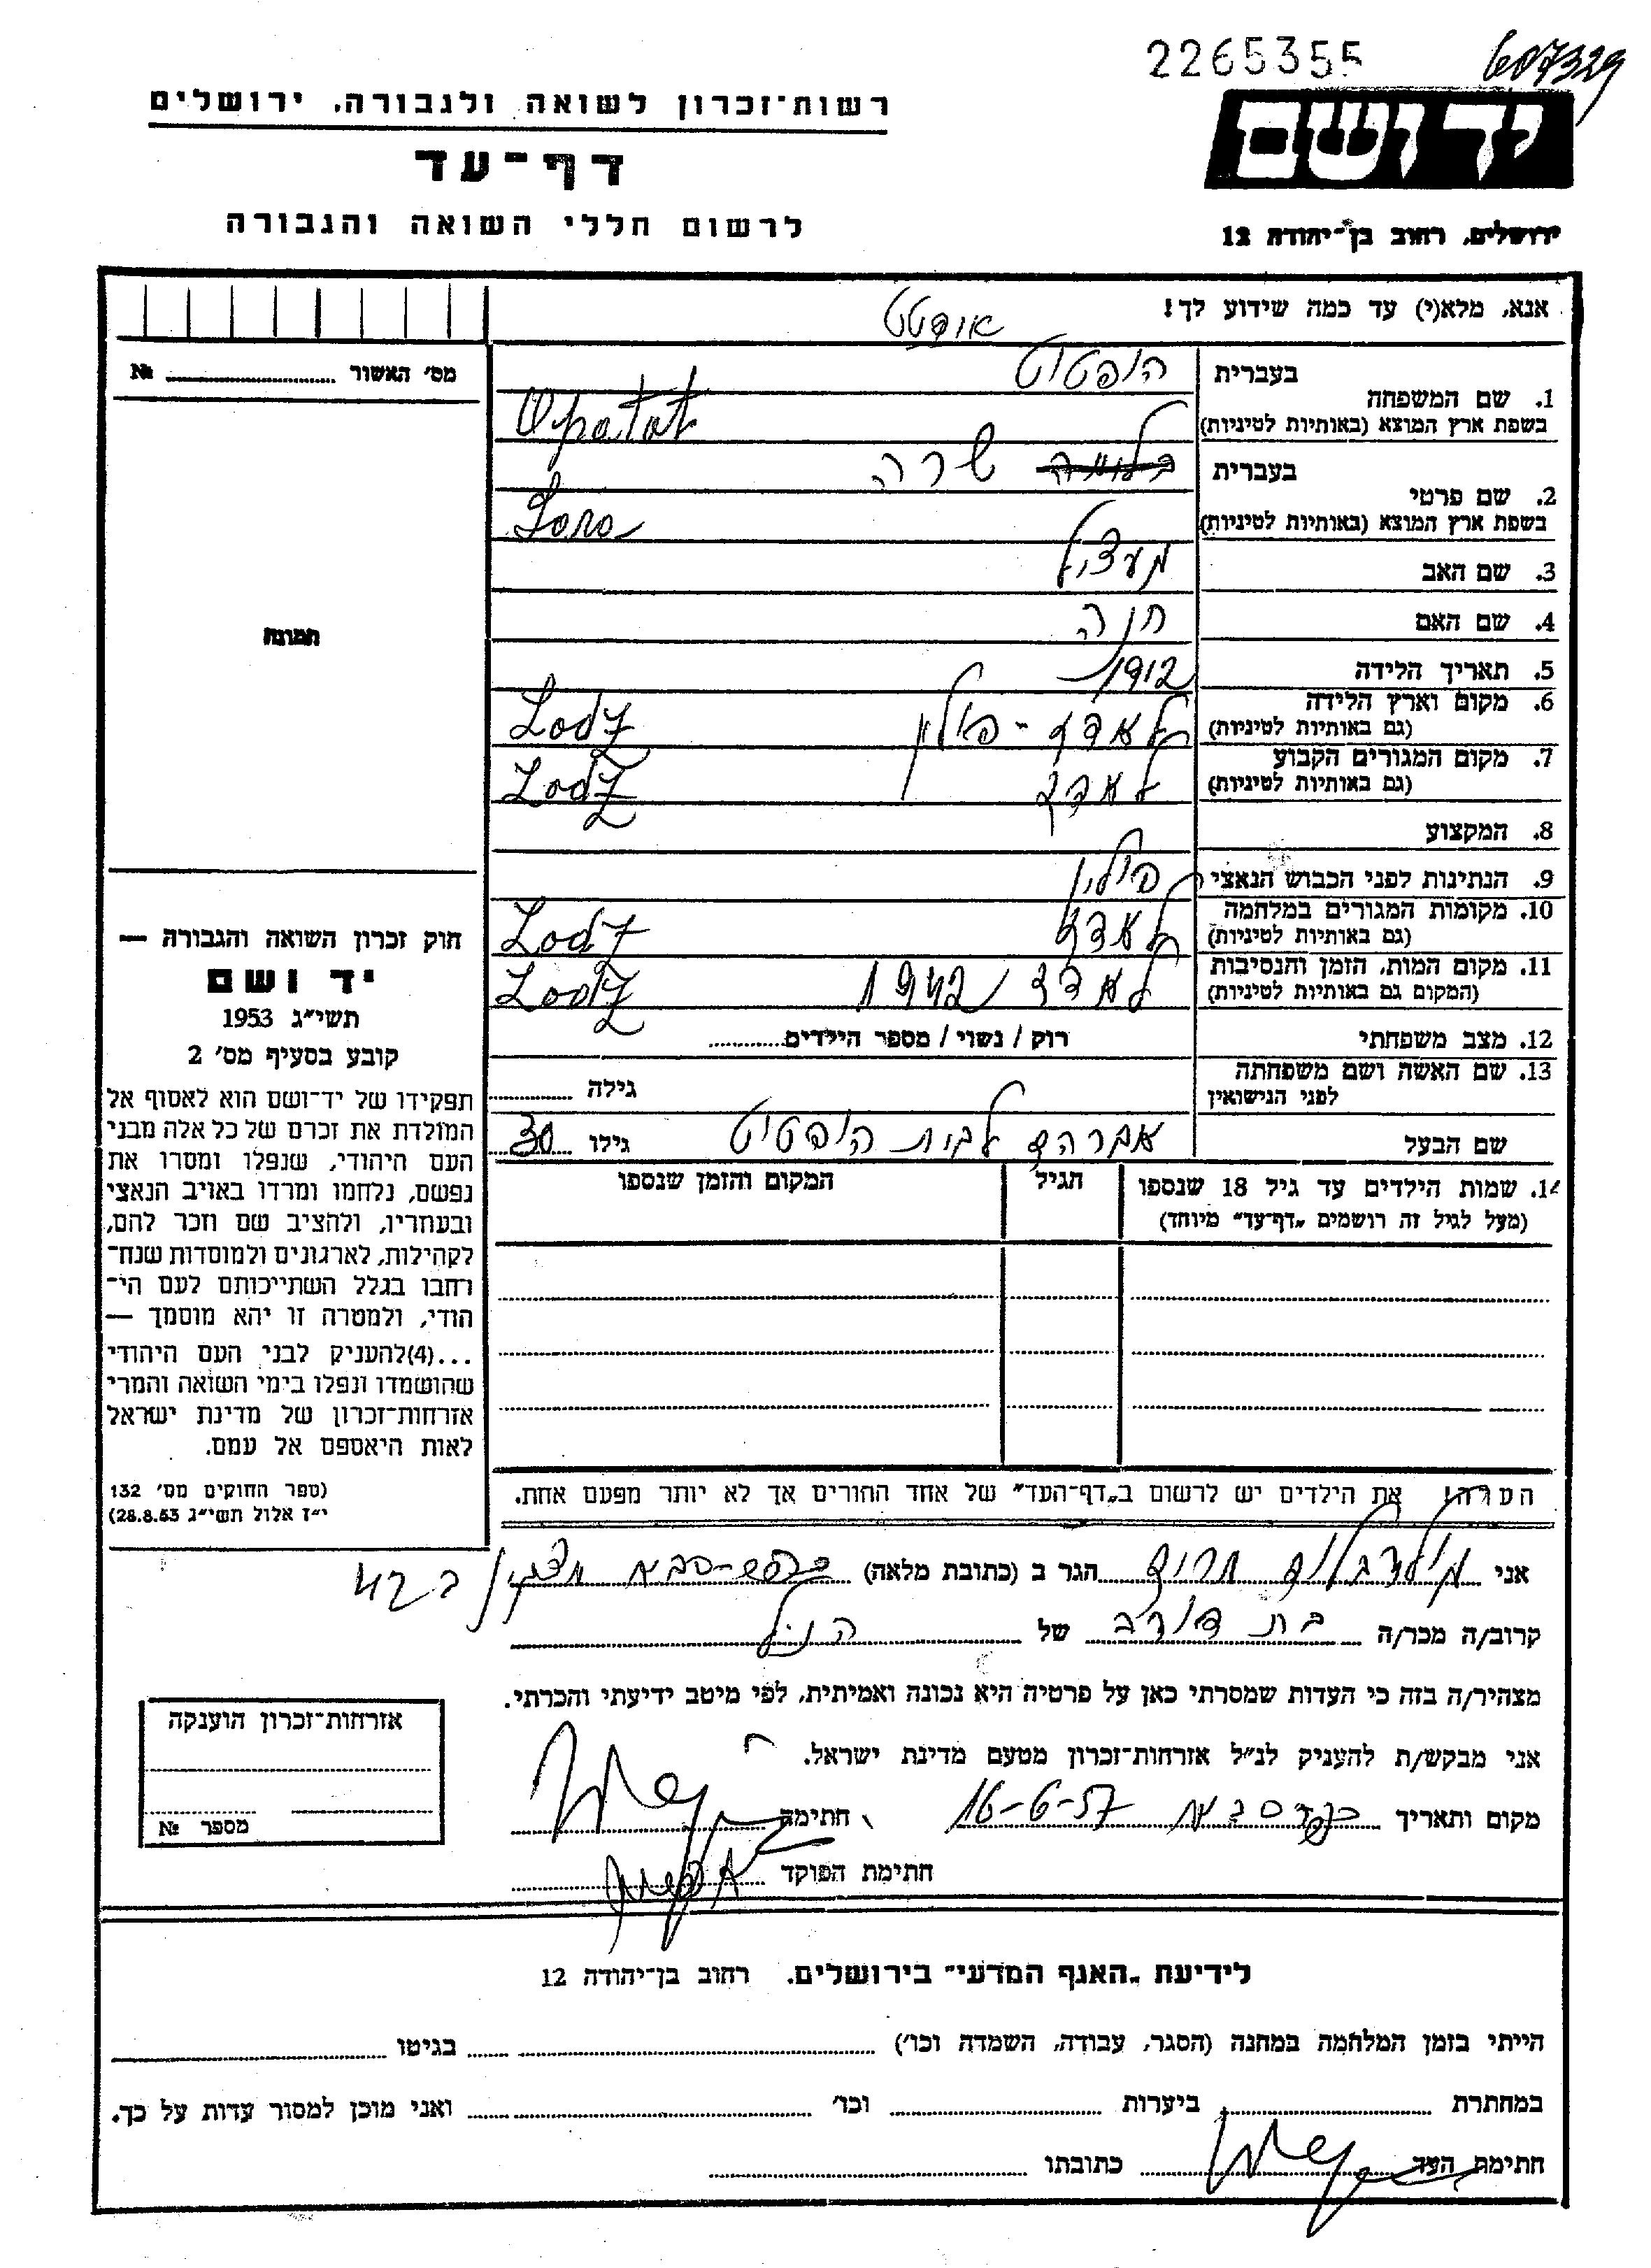 2265355
607329
יד ושם
ירושלים, רחוב בן־יהודה 12
רשות־זכרון לשואה ולגבורה, ירושלים
דף־עד
לרשום חללי השואה והגבורה
אנא, מלא(י) עד כמה שידוע לך!
אופטט
1. שם המשפחה
בעברית הופטוט
בשפת ארץ המוצא (באותיות לטיניות) Opatat
2. שם פרטי
בעברית שרה
בשפת ארץ המוצא (באותיות לטיניות)
3. שם האב
4. שם האם חנה
5. תאריך הלידה 1912
6. מקום וארץ הלידה לאדז - פולין Lodz
(גם באותיות לטיניות)
7. מקום המגורים הקבוע לאדז Lodz
(גם באותיות לטיניות)
8. המקצוע
9. הנתינות לפני הכבוש הנאצי פולין
10. מקומות המגורים במלחמה לאדז Lodz
(גם באותיות לטיניות)
11. מקום המות, הזמן והנסיבות לאדז, 1942 Lodz
(המקום גם באותיות לטיניות)
12. מצב משפחתי רוק / נשוי / מספר הילדים
13. שם האשה ושם משפחתה
לפני הנישואין גילה
שם הבעל אברהם לבית הופטוט גילו 30
14. שמות הילדים עד גיל 18 שנספו הגיל המקום והזמן שנספו
(מעל לגיל זה רושמים „דף־עד״ מיוחד)
הערה! את הילדים יש לרשום ב„דף־העד״ של אחד ההורים אך לא יותר מפעם אחת.
מס׳ האשור №
תמונה
חוק זכרון השואה והגבורה —
יד ושם
תשי״ג 1953
קובע בסעיף מס׳ 2
תפקידו של יד־ושם הוא לאסוף אל
המולדת את זכרם של כל אלה מבני
העם היהודי, שנפלו ומסרו את
נפשם, נלחמו ומרדו באויב הנאצי
ובעוזריו, ולהציב שם וזכר להם,
לקהילות, לארגונים ולמוסדות שנח־
רבו בגלל השתייכותם לעם הי־
הודי, ולמטרה זו יהא מוסמך —
...(4) להעניק לבני העם היהודי
שהושמדו ונפלו בימי השואה והמרי
אזרחות־זכרון של מדינת ישראל
לאות היאספם אל עמם.
(ספר החוקים מס׳ 132
י״ז אלול תשי״ג 28.8.53)
אני הגר ב (כתובת מלאה) כפר-סבא
קרוב/ה מכר/ה בת דודה של הנ״ל
מצהיר/ה בזה כי העדות שמסרתי כאן על פרטיה היא נכונה ואמיתית, לפי מיטב ידיעתי והכרתי.
אני מבקש/ת להעניק לנ״ל אזרחות־זכרון מטעם מדינת ישראל.
מקום ותאריך 16-6-57 חתימה
חתימת הפוקד
אזרחות־זכרון הוענקה
מספר №
לידיעת „האגף המדעי״ בירושלים. רחוב בן־יהודה 12
הייתי בזמן המלחמה במחנה (הסגר, עבודה, השמדה וכו׳) בגיטו
במחתרת ביערות וכו׳ ואני מוכן למסור עדות על כך.
חתימת העד כתובתו